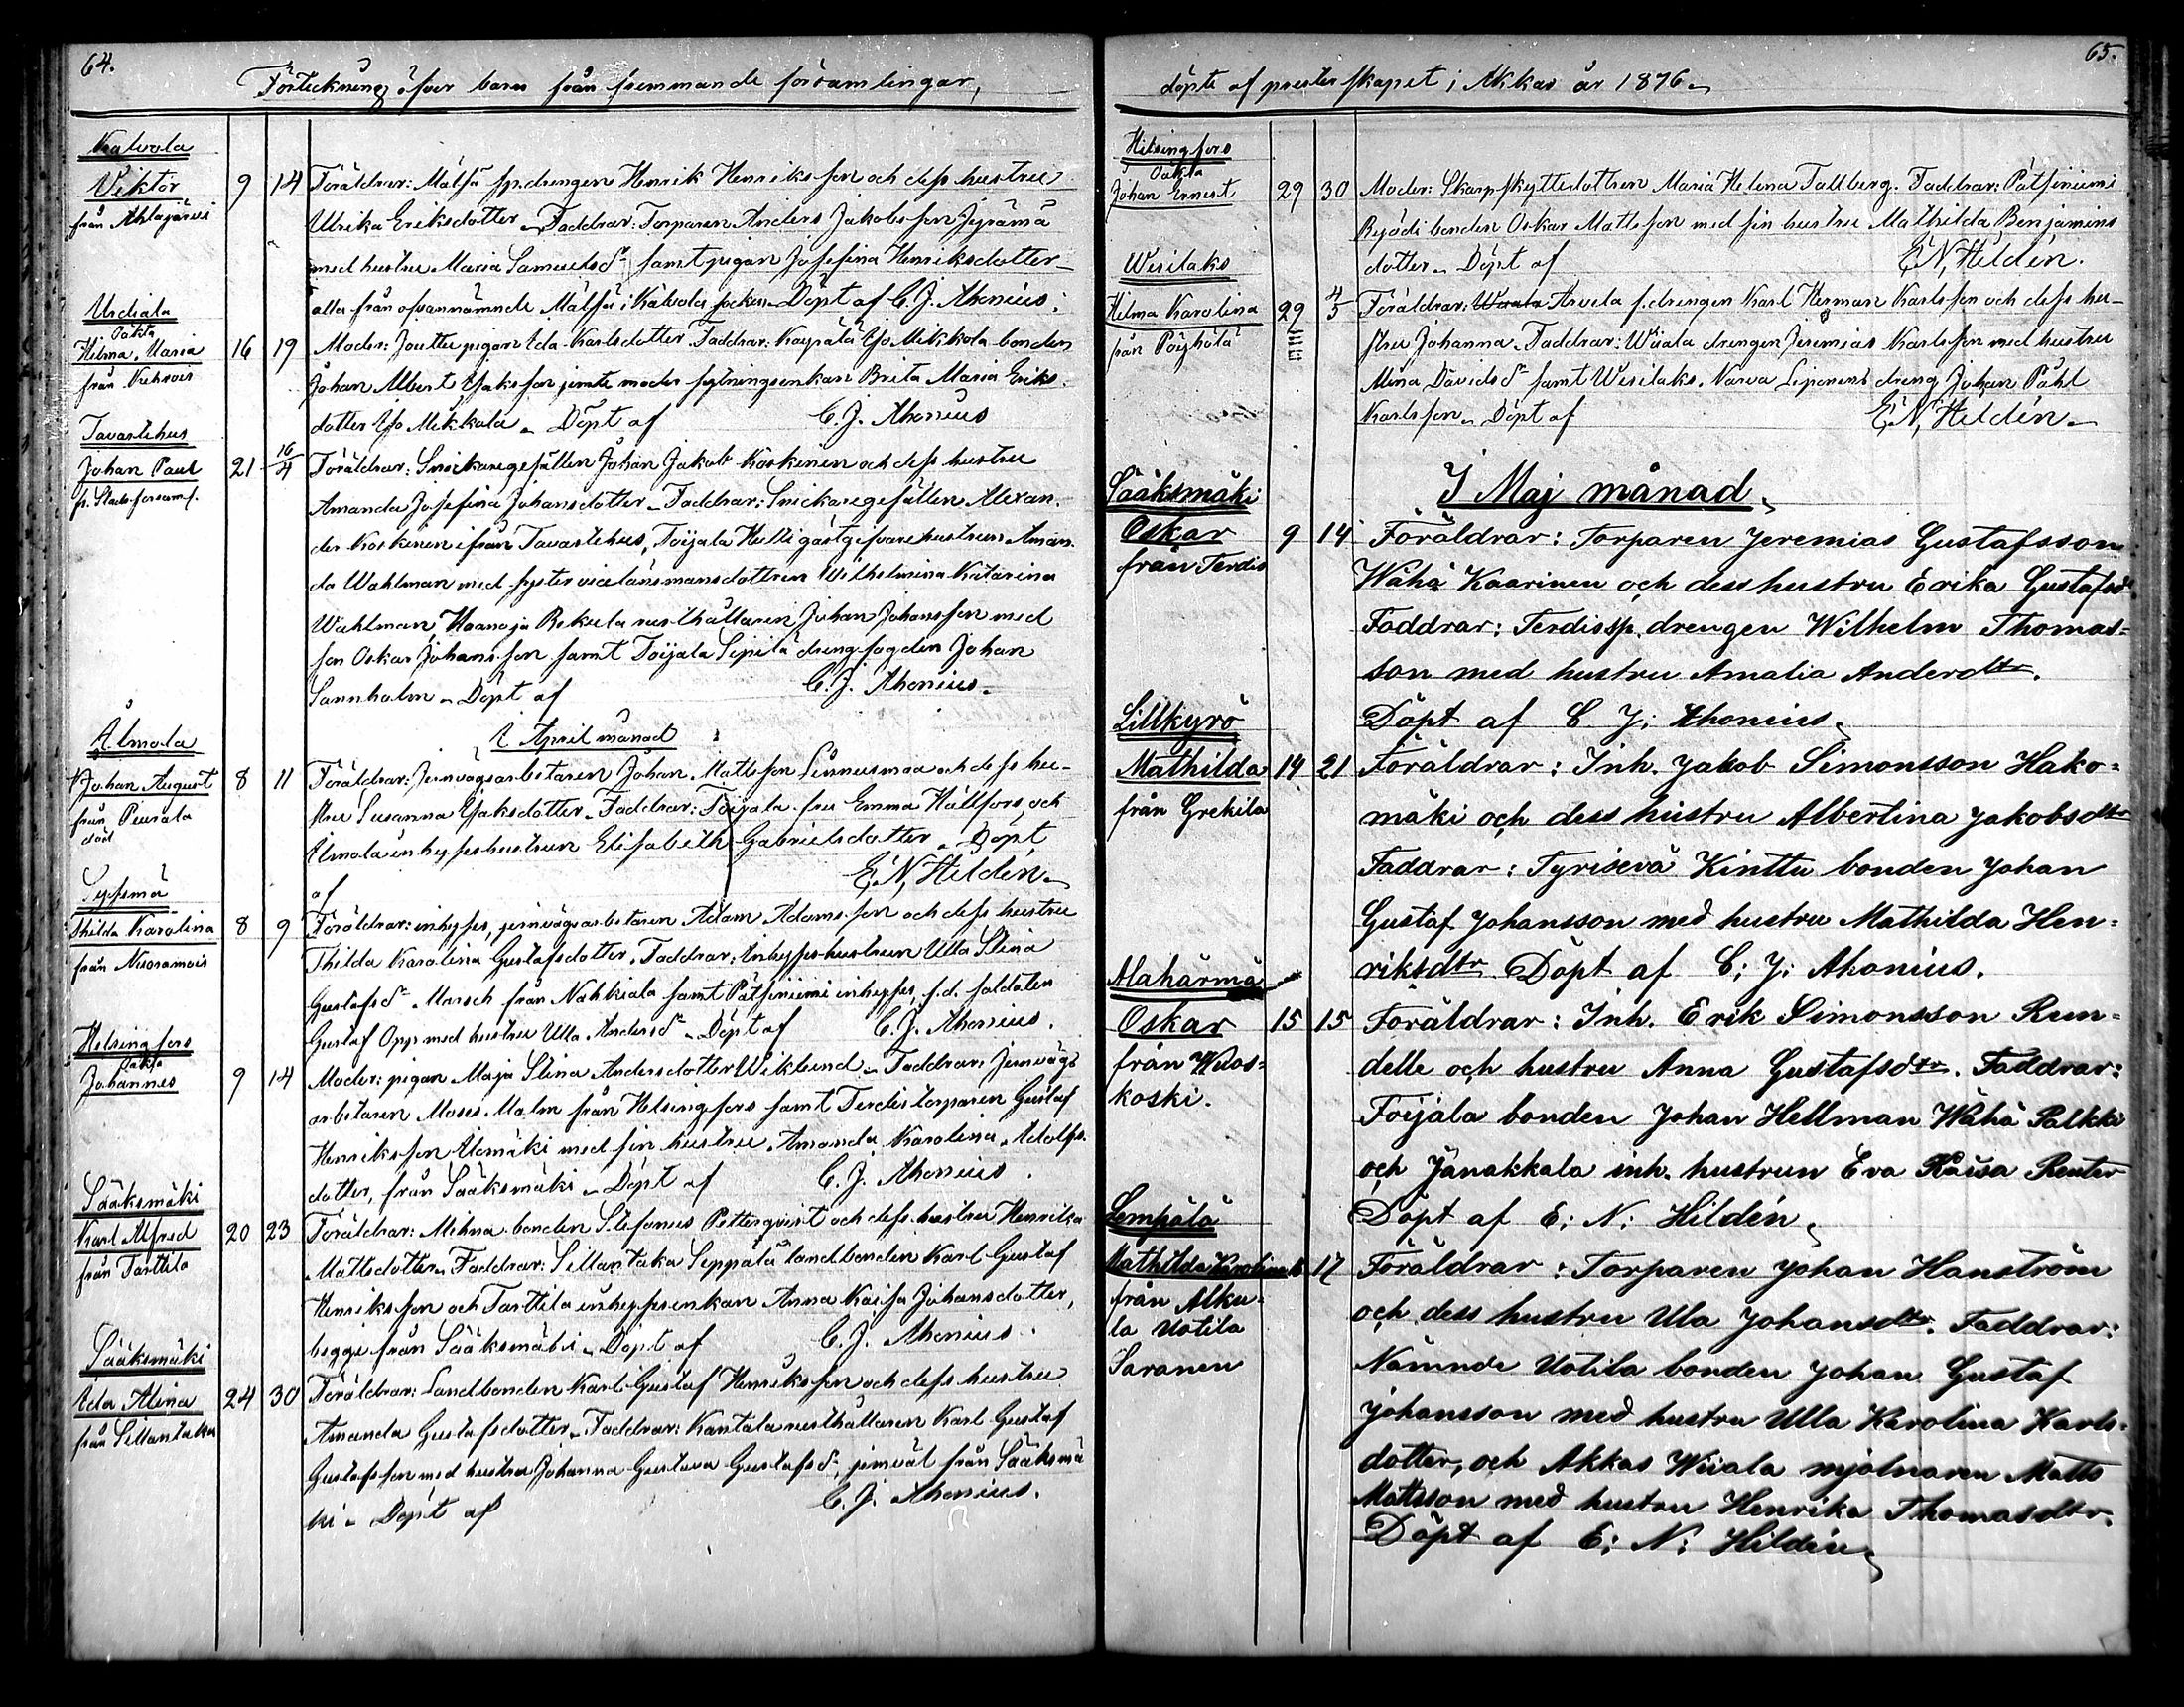 64.
Förteckning öfver barn från fremmande församlingar,
Kalvola
Viktor 9 14 Föräldrar: Mälsä sp.drengen Henrik Henriksson och dess hustru
från Ahlajärvi
Ulrika Eriksdotter. Faddrar: Torparen Anders Jakobsson
med hustru Maria Samuelsdr samt pigan Josefina Henriksdotter
alla från ofvannämnde Mälsä i Kalvola socken. Döpt af C. J. Ahonius.
Urdiala
Oäkta
Hilma Maria 16 19 Moder: Jouttu pigan Ida Karlsdotter. Faddrar: Yjo Mikkola bonden
från
Johan Albert Isaksson jemte moder sytningsenkan Brita Maria Eriks
dotter Yjo Mikkola. Döpt af C. J. Ahonius
Tavastehus
Johan Paul 21 16/4 Föräldrar: Snickaregesällen Johan Jakob Koskinen och dess hustru
fr. Stadsförsaml.
Amanda Josefina Johansdotter. Faddrar: Snickaregesällen Alexan-
der Koskinen ifrån Tavastehus, Toijala Hulli gästgifvarehustrun Aman-
da Wahlman med syster vicelänsmansdottren Wilhelmina Katarina
Wahlman, Haanoja Rekula rusthållaren Johan Johansson med
son Oskar Johansson samt Toijala Sipilä drengfogden Johan
Sannholm. Döpt af C. J. Ahonius.
I April månad
Ilmola
Johan August 8 11 Föräldrar: Jernvägsarbetaren Johan Mattsson Linnusmaa och dess hu-
från Peurala
död
stru Susanna Isaksdotter. Faddrar: Toijala fru Emma Hällfors, och
Ilmola inhyseshustrun Elisabeth Gabrielsdotter. Döpt
af E. N. Hildén.
Sysmä
Thilda Karolina 8 9 Föräldrar: inhyses, jernvägsarbetaren Adam Adamsson och dess hustru
från Nuoramois
Thilda Karolina Gustafsdotter. Faddrar: Inhyseshustrun Ulla Stina
Gustafsdr Marsch från Nahkiala samt Pätsiniemi inhyses, f.d. soldaten
Gustaf Opp med hustru Ulla Andersdr. Döpt af C. J. Ahonius.
Helsingfors
Oäkta
Johannes 9 14 Moder: pigan Maja Stina Andersdotter Wiklund. Faddrar: Jernvägs
arbetaren Moses Malm från Helsingfors samt Terdis torparen Gustaf
Henriksson Alomäki med sin hustru Amanda Karolina Adolfs
dotter, från Sääksmäki. Döpt af C. J. Ahonius.
Sääksmäki
Karl Alfred 20 23 Föräldrar: Mikna bonden Stefanus Petterqvist och dess hustru Henrika
från Tarttila
Mattsdotter. Faddrar: Sillantaka Seppälä landbonden Karl Gustaf
Henriksson och Tarttila inhysesenkan Anna Kaisa Johansdotter,
begge från Sääksmäki. Döpt af C. J. Ahonius.
Sääksmäki
Ida Alina 24 30 Föräldrar: Landbonden Karl Gustaf Henriksson och dess hustru
från Sillantaka
Amanda Gustafsdotter. Faddrar: Kantala rusthållaren Karl Gustaf
Gustafsson med hustru Johanna Gustava Gustafsdr, jemväl från Sääksmä
ki. Döpt af C. J. Ahonius.
65.
döpte af presterskapet i Akkas år 1876.
Helsingfors
Oäkta
Johan Ernest 29 30 Moder: Skarpskyttedottren Maria Helena Tallberg. Faddrar: Pätsiniemi
bonden Oskar Mattsson med sin hustru Mathilda Benjamins
dotter. Döpt af E. N. Hildén.
Wesilaks
Hilma Karolina 29 4/5 Föräldrar: Arvela s.drengen Karl Herman Karlsson och dess hu-
från Pöyhölä
stru Johanna. Faddrar: Wiiala drengen Jeremias Karlsson med hustru
Mina Davidsdr samt Wesilaks, Narva dreng Johan Påhl
Karlsson. Döpt af E. N. Hildén.
I Maj månad.
Sääksmäki
Oskar 9 14 Föräldrar: Torparen Jeremias Gustafsson
från Terdis
Wähä Kaarinen och dess hustru Erika Gustafsdr.
Faddrar: Terdis sp. drengen Wilhelm Thomas=
son med hustru Amalia Andersdtr.
Döpt af C. J: Ahonius.
Lillkyrö
Mathilda 14 21 Föräldrar: Inh. Jakob Simonsson Hako=
från Grekila
mäki och dess hustru Albertina Jakobsdtr
Faddrar: Tyrisevä Kinttu bonden Johan
Gustaf Johansson med hustru Mathilda Hen=
riksdtr Döpt af C: J: Ahonius.
Alahärmä
Oskar 15 15 Föräldrar: Inh. Erik Simonsson Run=
från Wuos=
koski.
delle och hustru Anna Gustafsdtr. Faddrar:
Toijala bonden Johan Hellman Wähä Palkki
och Janakkala inh. hustrun Eva Kaisa Reuter
Döpt af E: N: Hildén.
Lempälä
Mathilda Karolina 16 17 Föräldrar: Torparen Johan Hanström
från Alku=
la Uotila
Saranen
och dess hustru Ulla Johansdtr. Faddrar:
Nämnde Uotila bonden Johan Gustaf
Johansson med hustru Ulla Karolina Karls=
dotter, och Akkas Wiiala mjölnaren Matts
Mattsson med hustru Henrika Thomasdtr.
Döpt af E: N: Hildén.